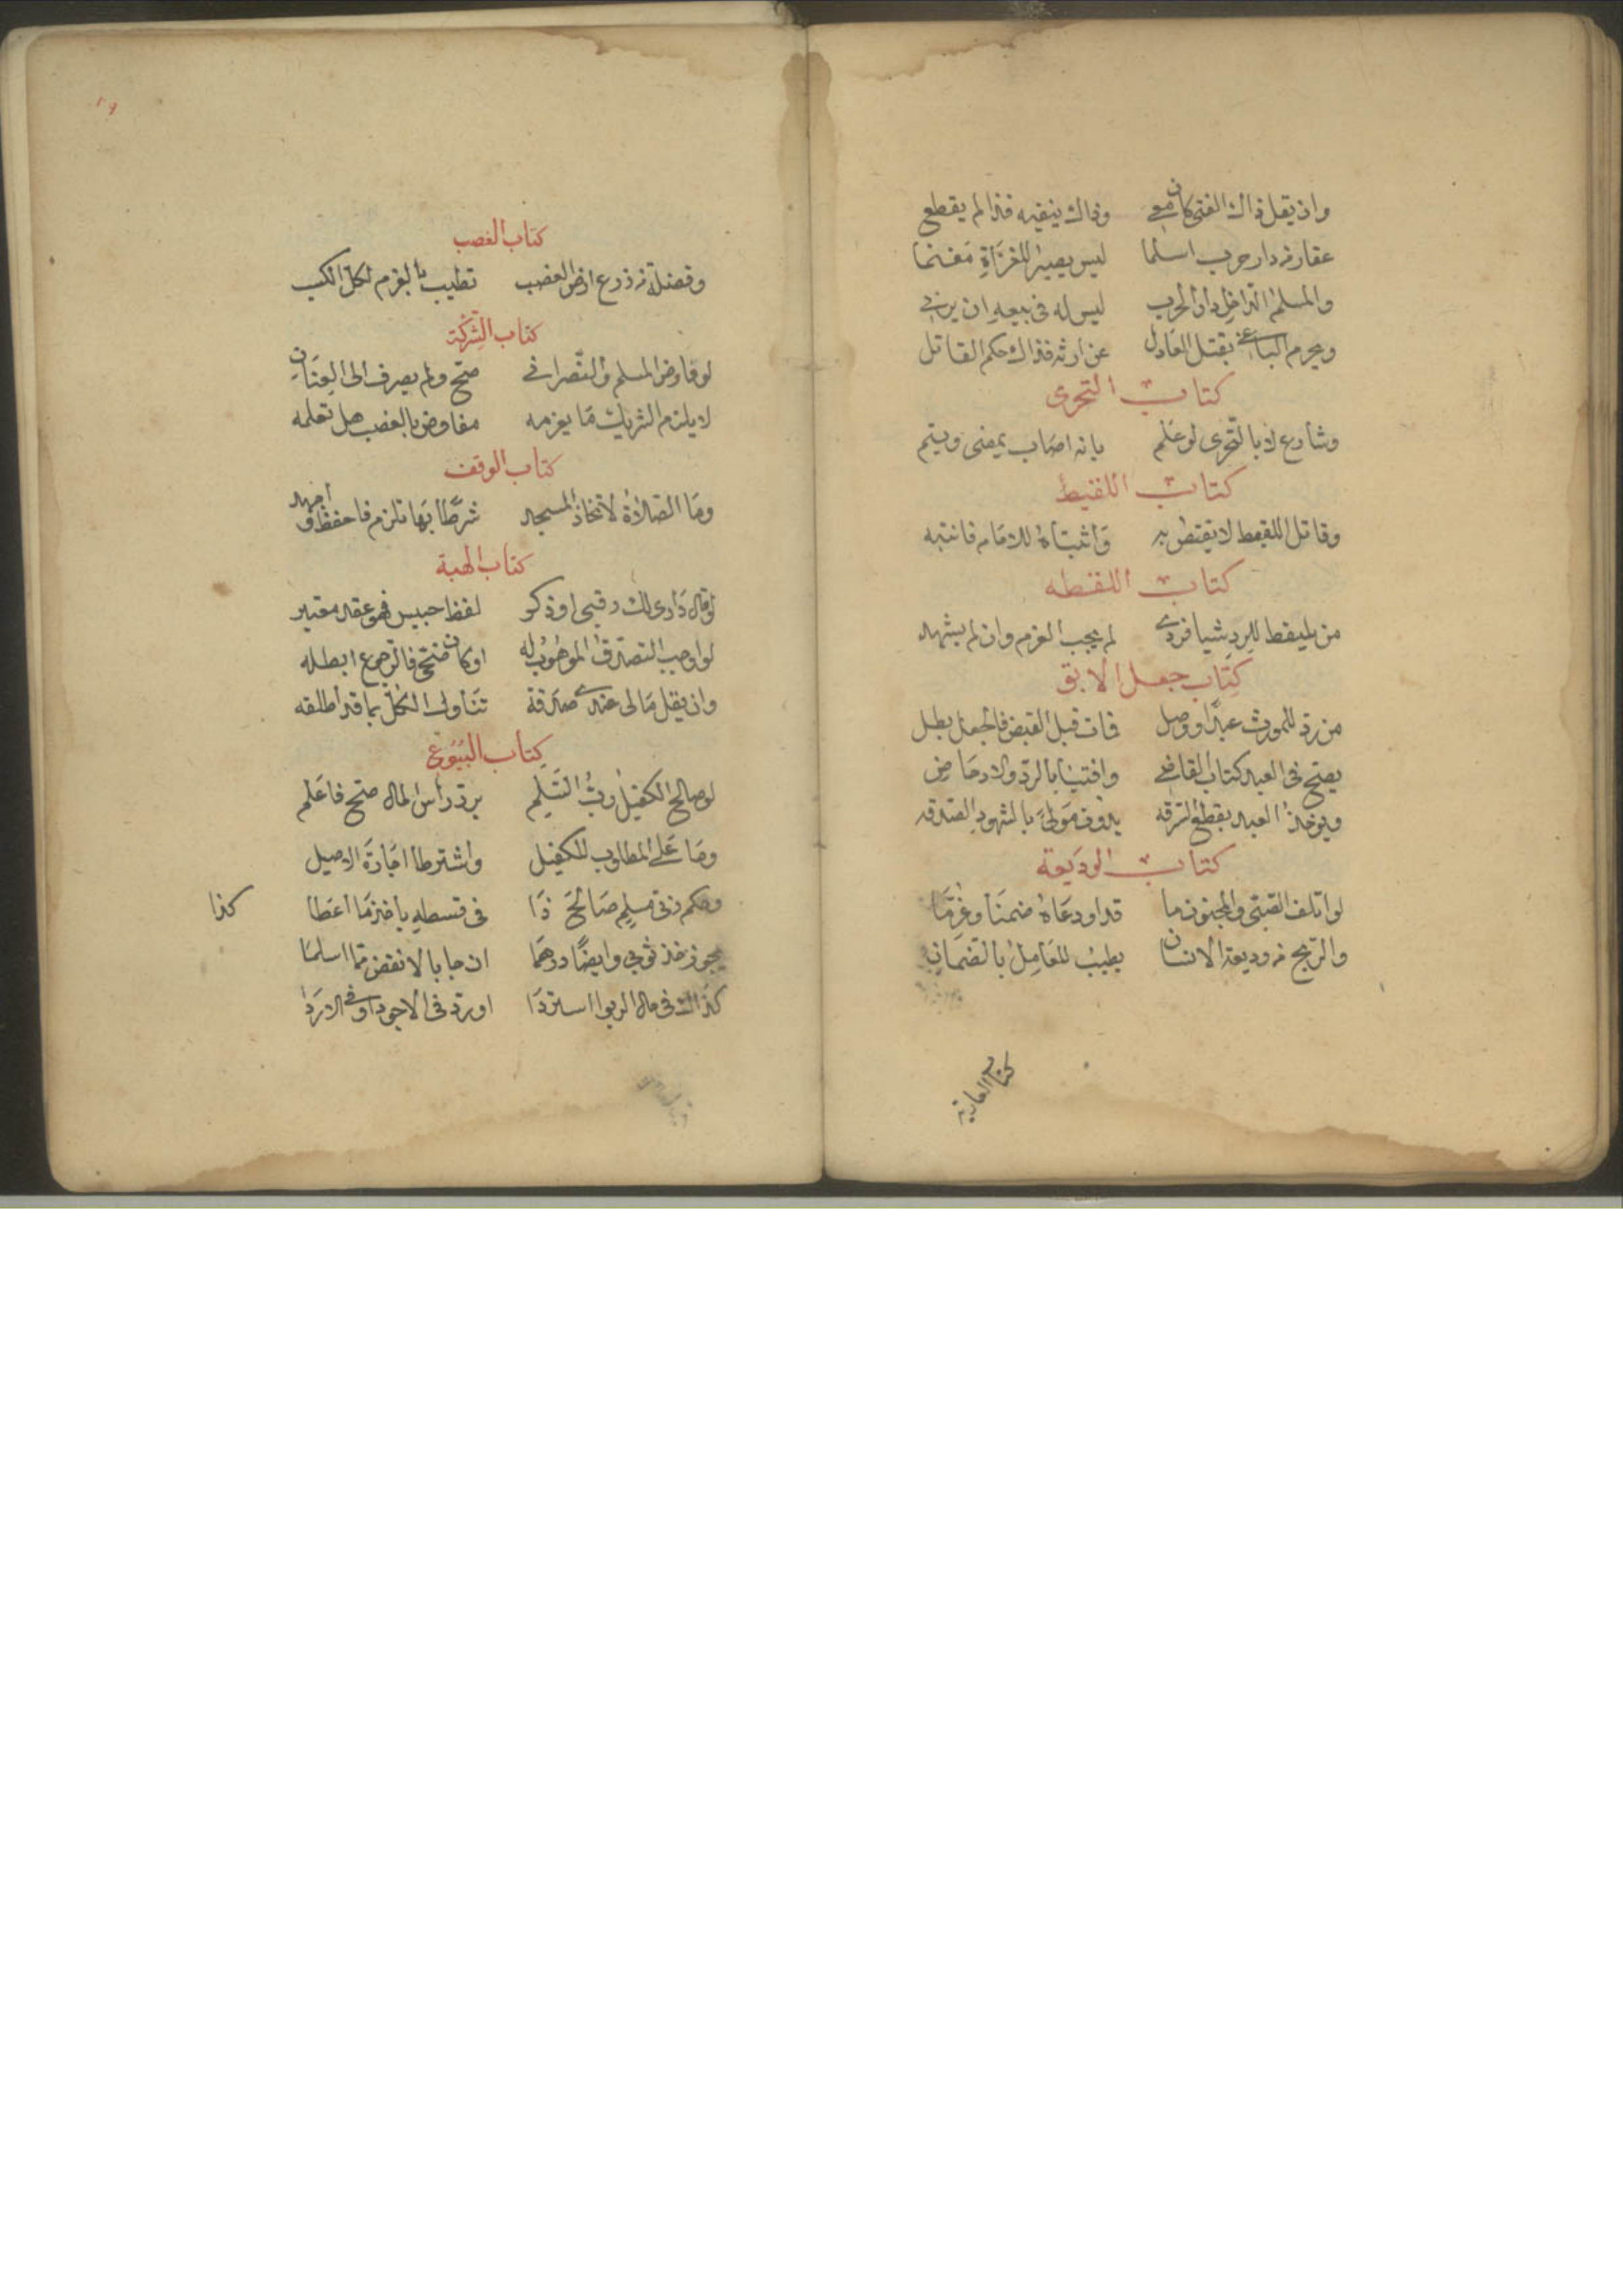 وان يقل ذاك الفتى كان معي    وذاك ينفيه فذا لم يقطع
عقار من دار حرب اسلما    ليس يصير للغزاة مغنما
والمسلم الداخل دار الحرب    ليس له في بيعه ان
ويحرم الباغي بقتل العادل    عن ارثه فذاك حكم القاتل
كتاب التحرى
وشارع لا بالتحرى لو علم    بانه اصاب يمضى ويتم
كتاب اللقيط
وقاتل اللقيط لا يقتص به    واثبتاه للامام فانتبه
كتاب اللقطه
من يلتقط للرد شيا فردي    لم يجب الغرم وان لم يشهد
كتاب جعل الابق
من رد للمورث عبدا ووصل    فات قبل القبض فالجعل بطل
يصح في العبد كتاب القاضي    وافتيا بالرد والادحاض
ويوخذ العبد بقطع السرقه    بدون مولى بالشهود الصدقه
كتاب الوديعة
لو اتلف الصبي والمجنون ما    قد اودعاه ضمنا وغرما
والربح من وديعة الانسان    يطيب للعامل بالضمان
كتاب العارية
كتاب الغصب
وفضلة من زرع ارض الغصب    تطيب بالغرم لكل الكسب
كتاب الشركة
لو فاوض المسلم والنصراني    صح ولم يصرف الى العنان
لا يلزم الشريك ما يغرمه    مفاوض بالغصب هل تعلمه
كتاب الوقف
وما الصلاة لاتخاذ المسجد    شرطا بها تلزم فاحفظ واجهد
كتاب الهبة
لو قال دارى لك رقبى او ذكر    لفظ حبيس فهو عقد معتبر
لو اوجب التصدق الموهوب له    او كان ضحى فالرجوع ابطله
وان يقل مالى عندي صدقة    تناول الكل بما قد اطلقه
كتاب البيوع
لو صالح الكفيل رب السلم    برد راس المال صح فاعلم
وما على المطلوب للكفيل    واشترطا اجازة الاصيل
وحكم ذى سلم صالح ذا    في قسطه ياخذ ما اعطا    كذا
يجوز خذ ثوبي وايضا درهما    ان جابا لا نقض مما اسلما
كذاك في مال الربوا استردا    او رد في الاجود او في الاردا